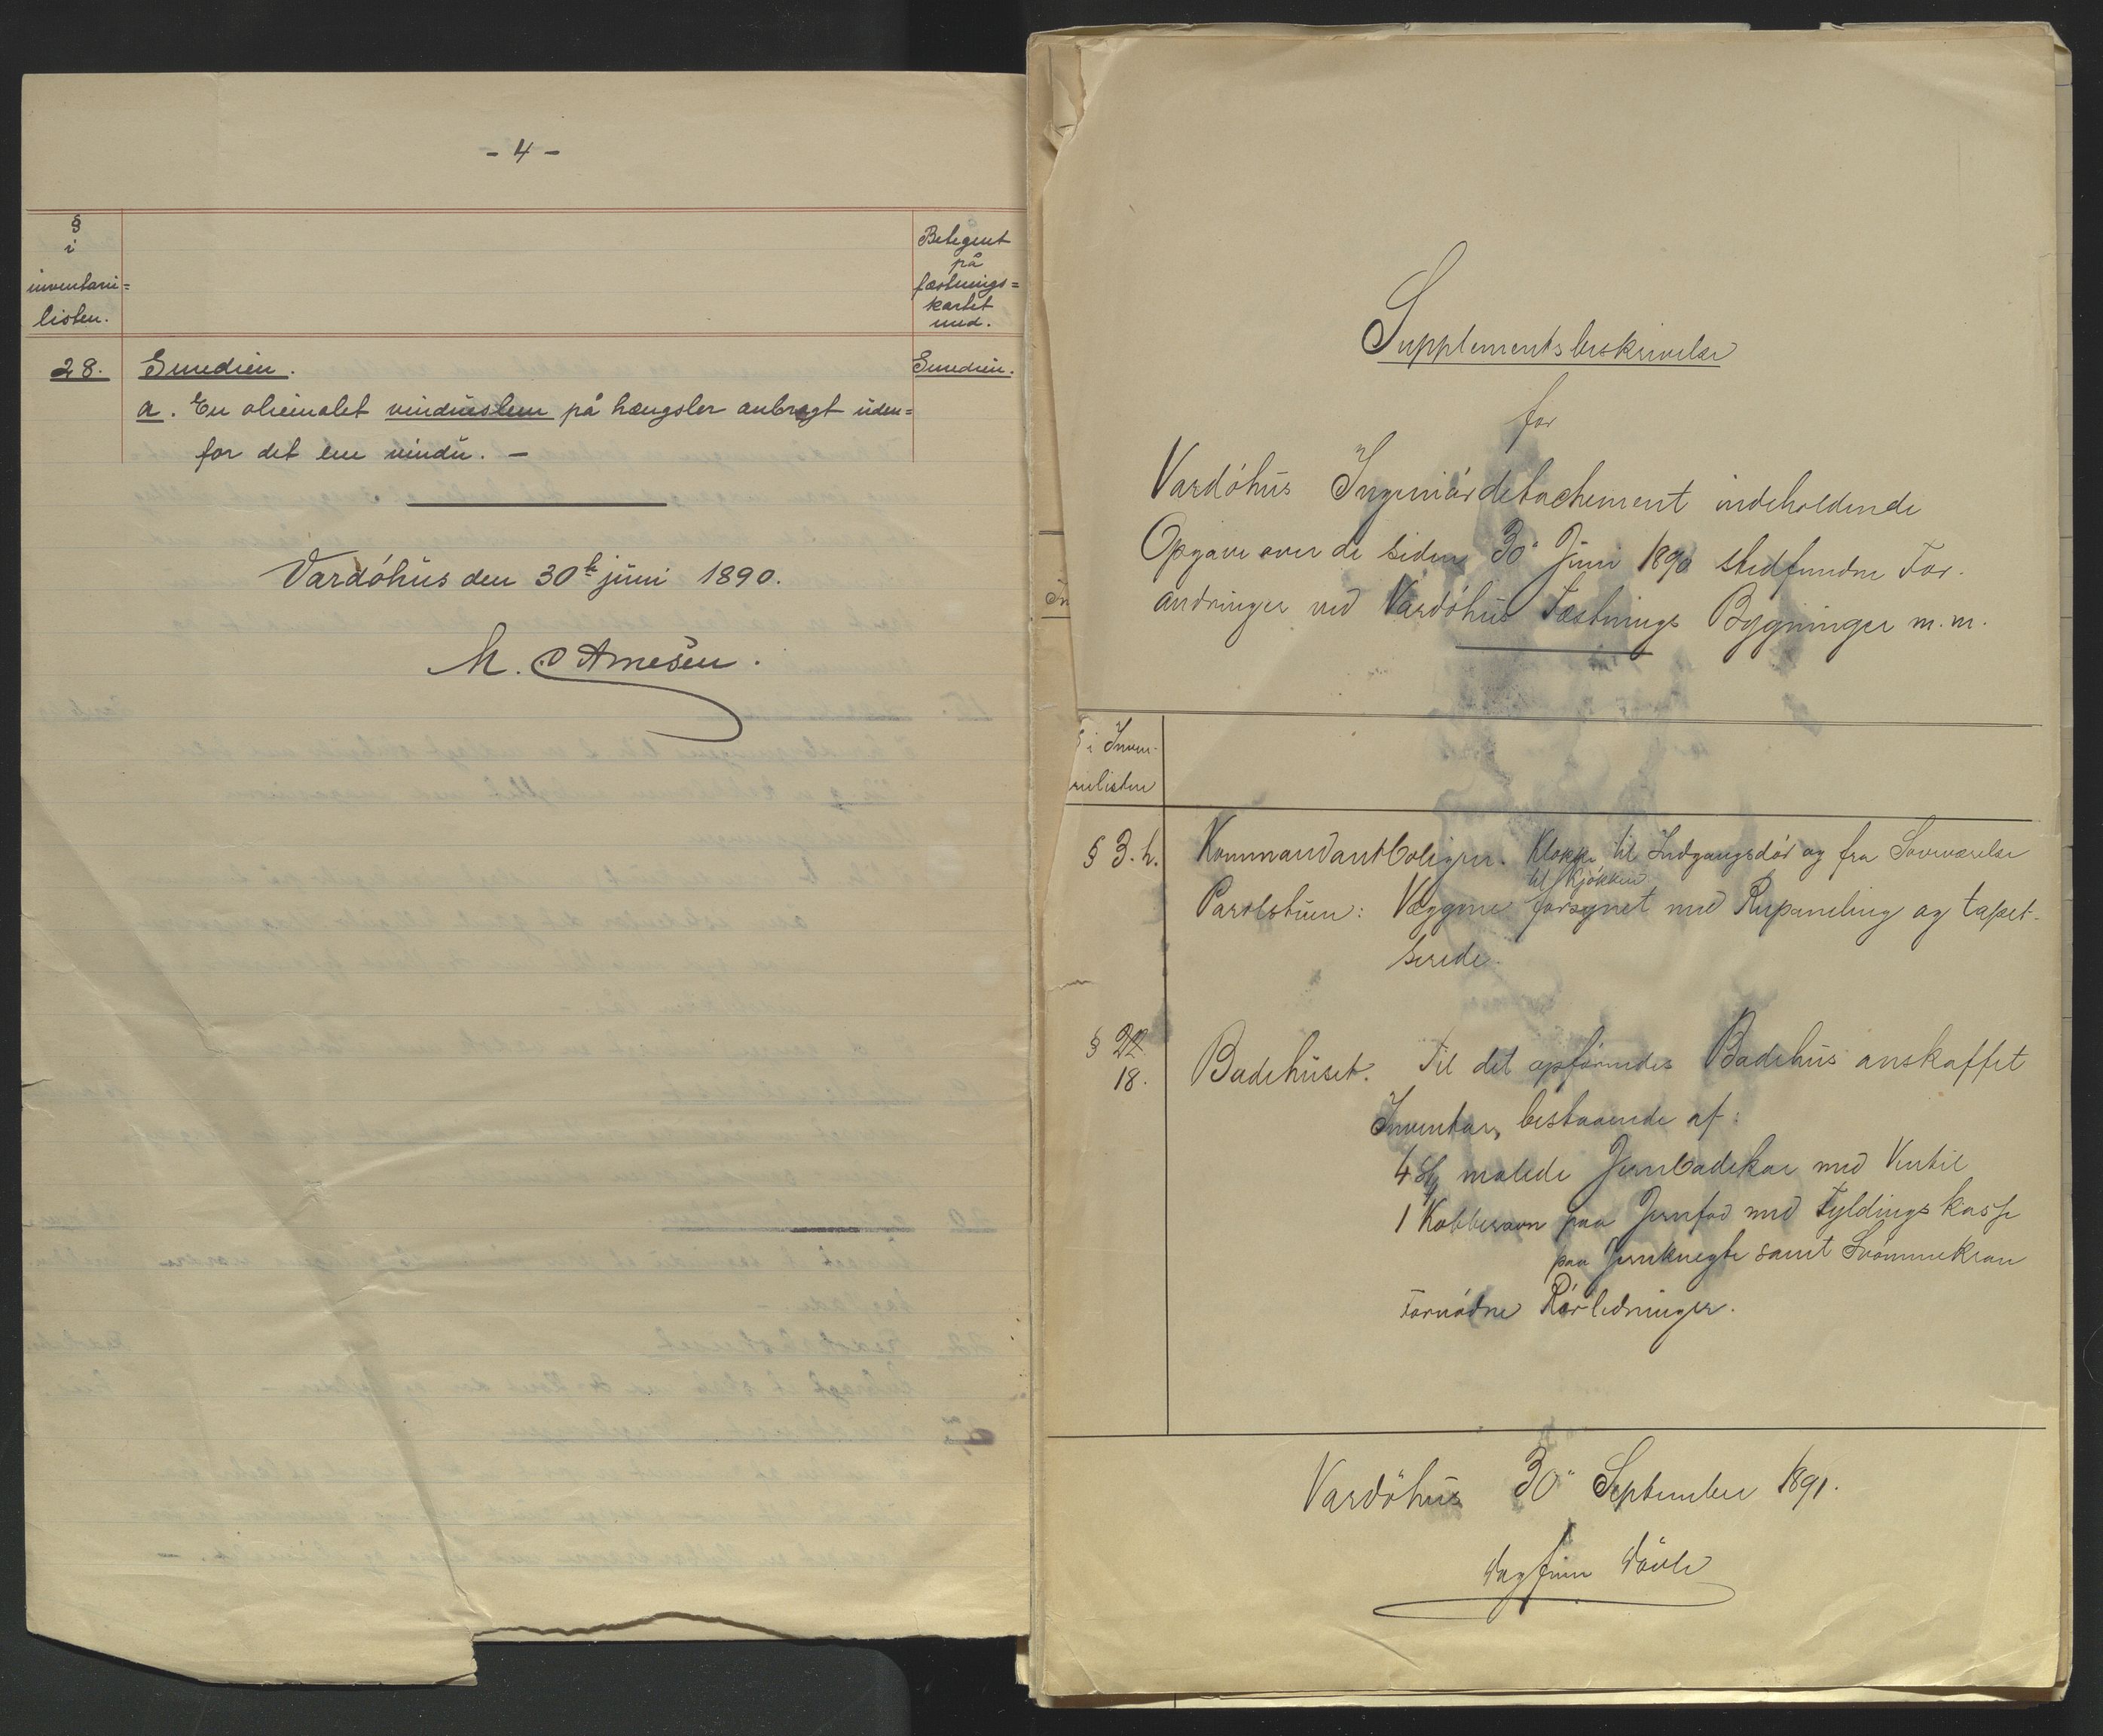 - 4 -
§
i
inventari=
listen.
Betegnet
på
fæstnings=
kartet
med.
28. Smedien. Smedien.
a. En oliemalet vindueslem på hængsler anbragt uden=
for det ene vindu. -
Vardöhus den 30te juni 1890.
M. Arnesen.
Supplementsbeskrivelse
for
Vardöhus Ingeniördetachement indeholdende
Opgave over de siden 30" Juni 1890 stedfundne For-
andringer ved Vardöhus Fæstnings Bygninger m.m.
§ i Inven-
rielisten
§ 3.h. Kommandantboligen. Klokke til Indgangsdör og fra Soveværelse
til Kjökken
Parolstuen: Væggene forsynet med Rupaneling og tapet-
serede.
§ 22
18. Badehuset. Til det opförendes Badehus anskaffet
Inventar, bestaaende af:
4 St malede Jernbadekar med Ventil
1 Kobberovn paa Jernfod med Fyldingskasse
paa Jernknegte samt Svömmekran
Fornödne Rörledninger.
Vardöhus 30" September 1891.
Dagfinn